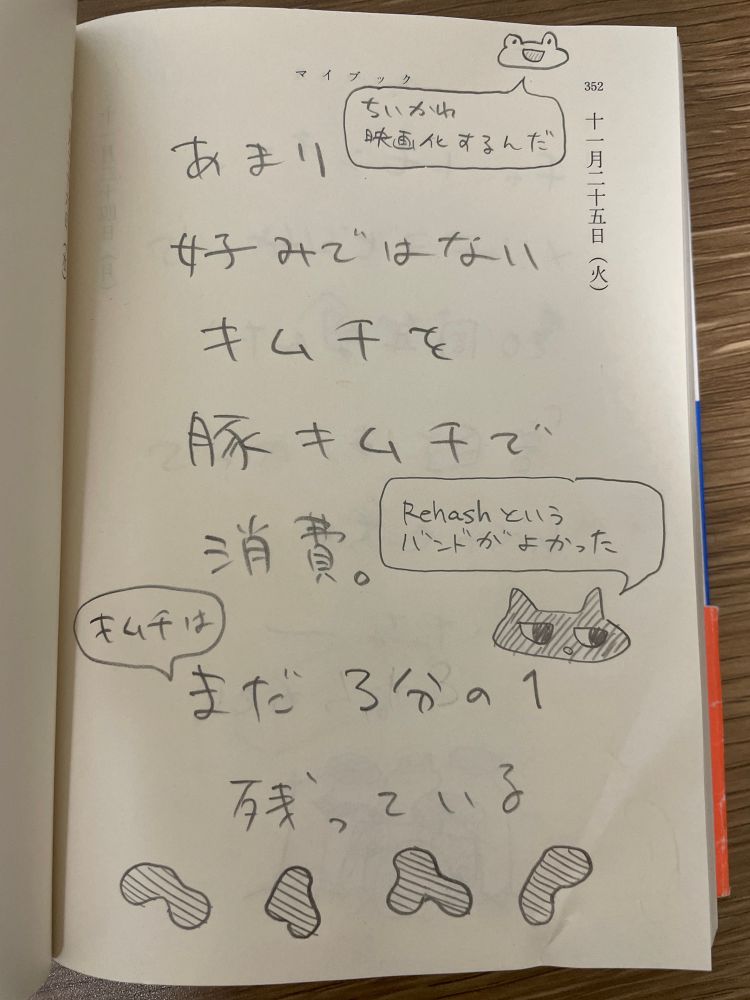 マイブック
352
十一月二十五日（火）
ちいかわ
映画化するんだ
あまり
好みではない
キムチを
豚キムチで
消費。
Rehashという
バンドがよかった
キムチは
まだ3分の1
残っている